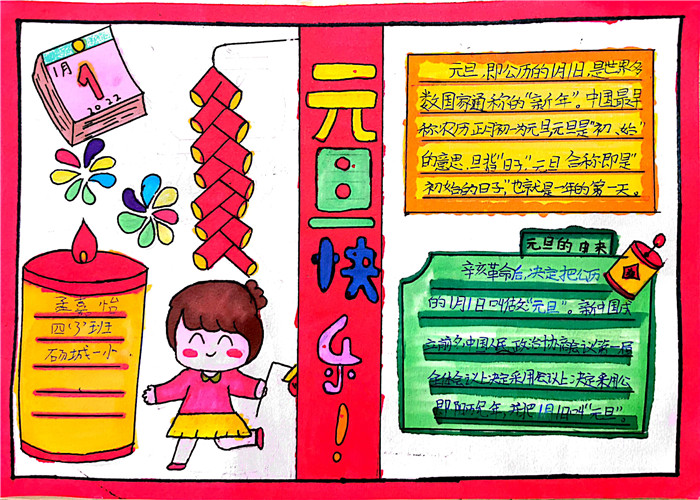 1月
1
2022
元旦快乐!
孟嘉怡
四(3)班
砀城一小
元旦,即公历的1月1日,是世界多
数国家通称的"新年"。中国最早
称农历正月初一为元旦,元旦是"初、始"
的意思,旦指"日子",元旦合称即是"
初始的日子",也就是一年的第一天。
元旦的由来
辛亥革命后,决定把公历
的1月1日叫"元旦"。新中国成
立前夕,中国人民政治协商会议第一届
全体会议上决定采用
即 年,并把1月1日叫"元旦"。